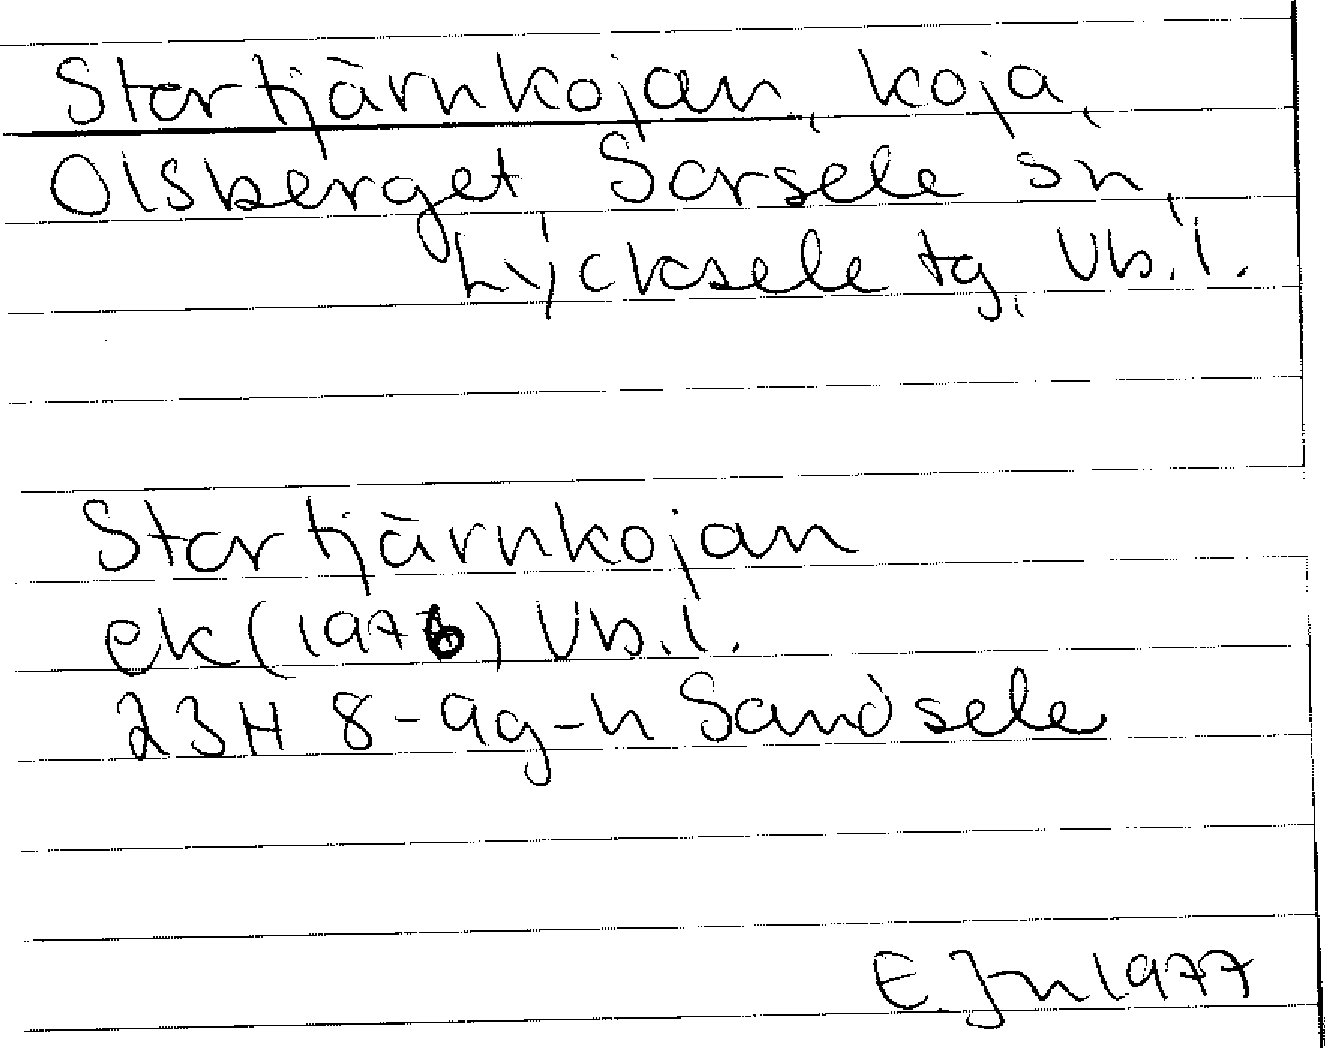 Stortjärnkojan, koja,
Olsberget Sorsele sn,
Lycksele tg, Vb. l.
Stortjärnkojan
ek (1976) Vb. l.
23H 8-9g-h Sandsele
E. Jn 1977